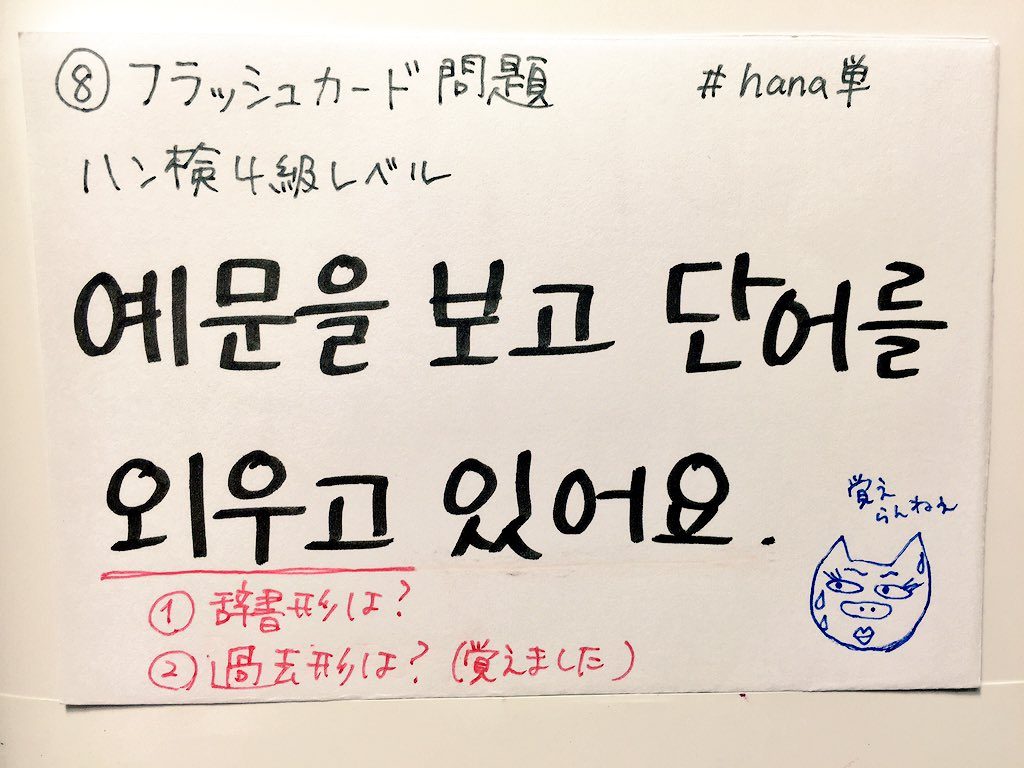 ⑧ フラッシュカード問題 #hana単
ハン検4級レベル
예문을 보고 단어를
외우고 있어요.
① 辞書形は?
② 過去形は?(覚えました)
覚え
らんねえ